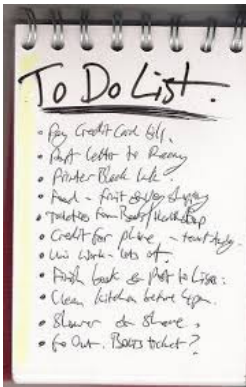 To Do List.
• Pay Credit Card bill,
• Post letter to
• Printer Black Ink.
• Food - fruit
• from
• Credit for phone -
• Uni work - lots of.
• Finish book & Post to Lisa.
• Clean kitchen before
• Shower & Shave,
• Go Out. ticket?